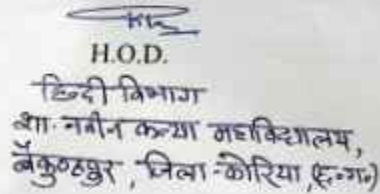 H.O.D.
हिन्दी विभाग
शा. नवीन कन्या महाविद्यालय,
बैकुण्ठपुर, जिला-कोरिया (छ.ग.)